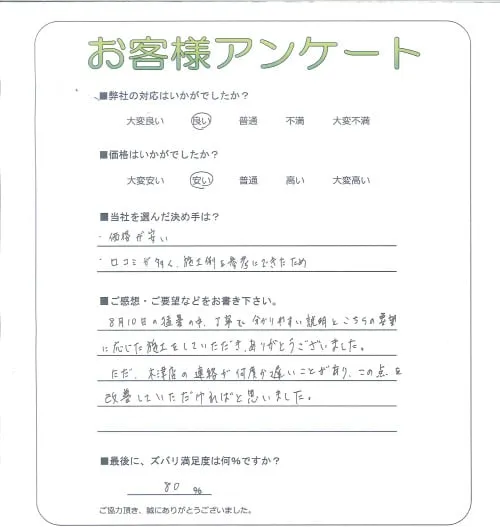 お客様アンケート
■弊社の対応はいかがでしたか?
大変良い 良い 普通 不満 大変不満
■価格はいかがでしたか?
大変安い 安い 普通 高い 大変高い
■当社を選んだ決め手は?
・価格が安い
・口コミが多く、施工例を参考にできたため
■ご感想・ご要望などをお書き下さい。
8月10日の猛暑の中、丁寧で分かりやすい説明とこちらの要望
に応じた施工をしていただき、ありがとうございました。
ただ、木津店の連絡が何度か遅いことがあり、この点を
改善していただければと思いました。
■最後に、ズバリ満足度は何%ですか?
80 %
ご協力頂き、誠にありがとうございました。